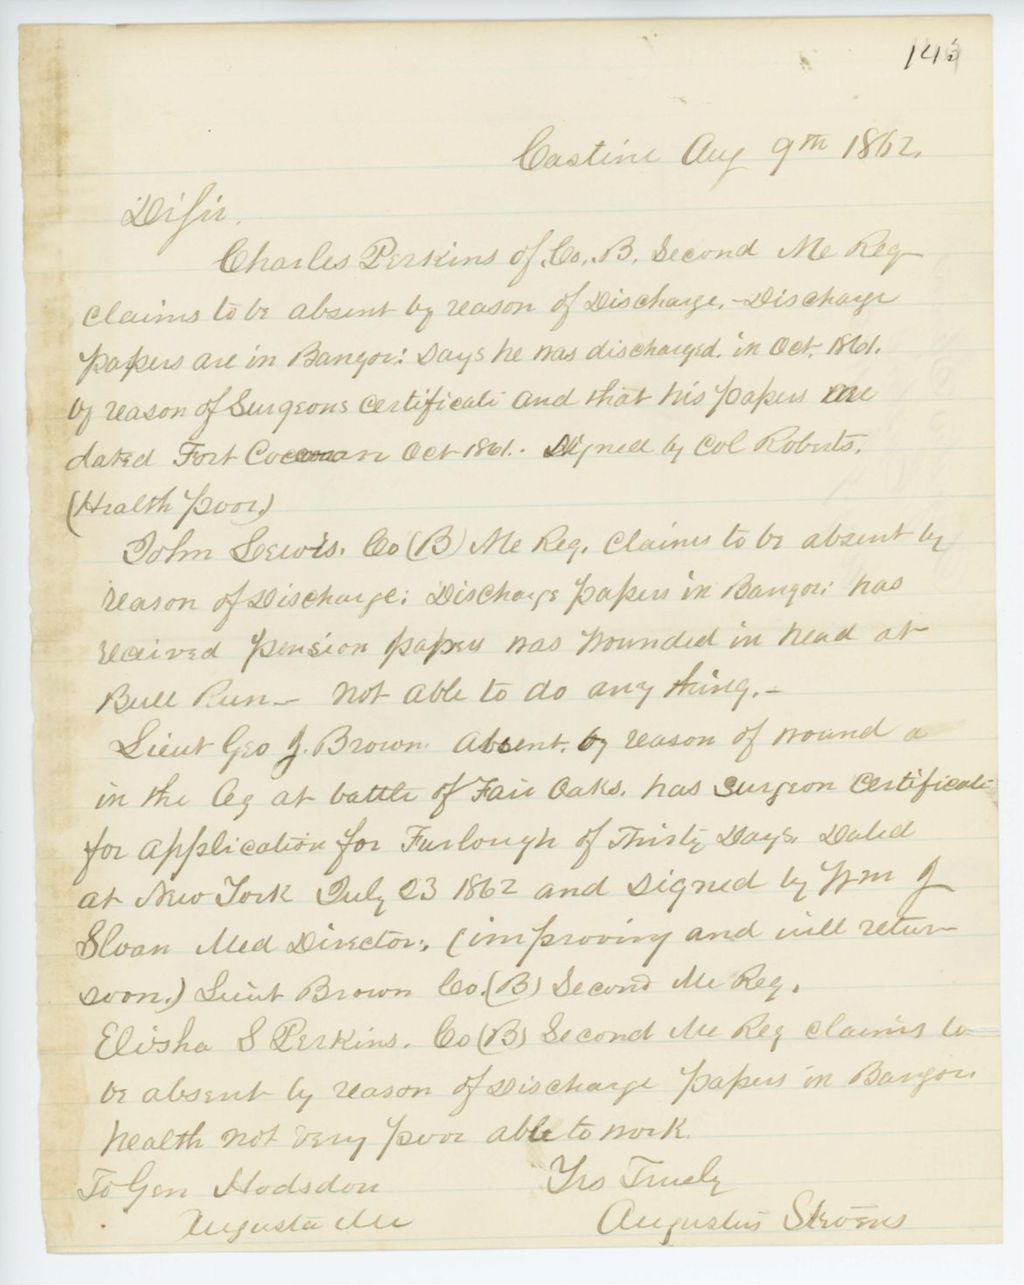 145
Castine Aug 9th 1862.
Dr Sir.
Charles Perkins of Co. B. Second Me Reg
claims to be absent by reason of Discharge. - Discharge
papers are in Bangor: Says he was discharged. in Oct. 1861.
by reason of Surgeons certificate and that his papers are
dated Fort Oct 1861. Signed by Col Roberts.
(Health poor.)
John Lewis. Co (B) Me Reg. Claims to be absent by
reason of Discharge: Discharge papers in Bangor: has
received pension papers was wounded in head at
Bull Run - not able to do any thing. -
Lieut Geo J. Brown. Absent. by reason of wound a
in the leg at battle of Fair Oaks. has Surgeon Certificate
for application for Furlough of Thirty Days. Dated
at New York July 23 1862 and Signed by Wm J
Sloan Med Director. (improving and will return
soon.) Lieut Brown Co. (B) Second Me Reg.
Elisha S Perkins. Co (B) Second Me Reg claims to
be absent by reason of Discharge papers in Bangor
health not very poor able to work.
To Gen Hodsdon Yrs Truely
Augusta Me Augustus Stevens